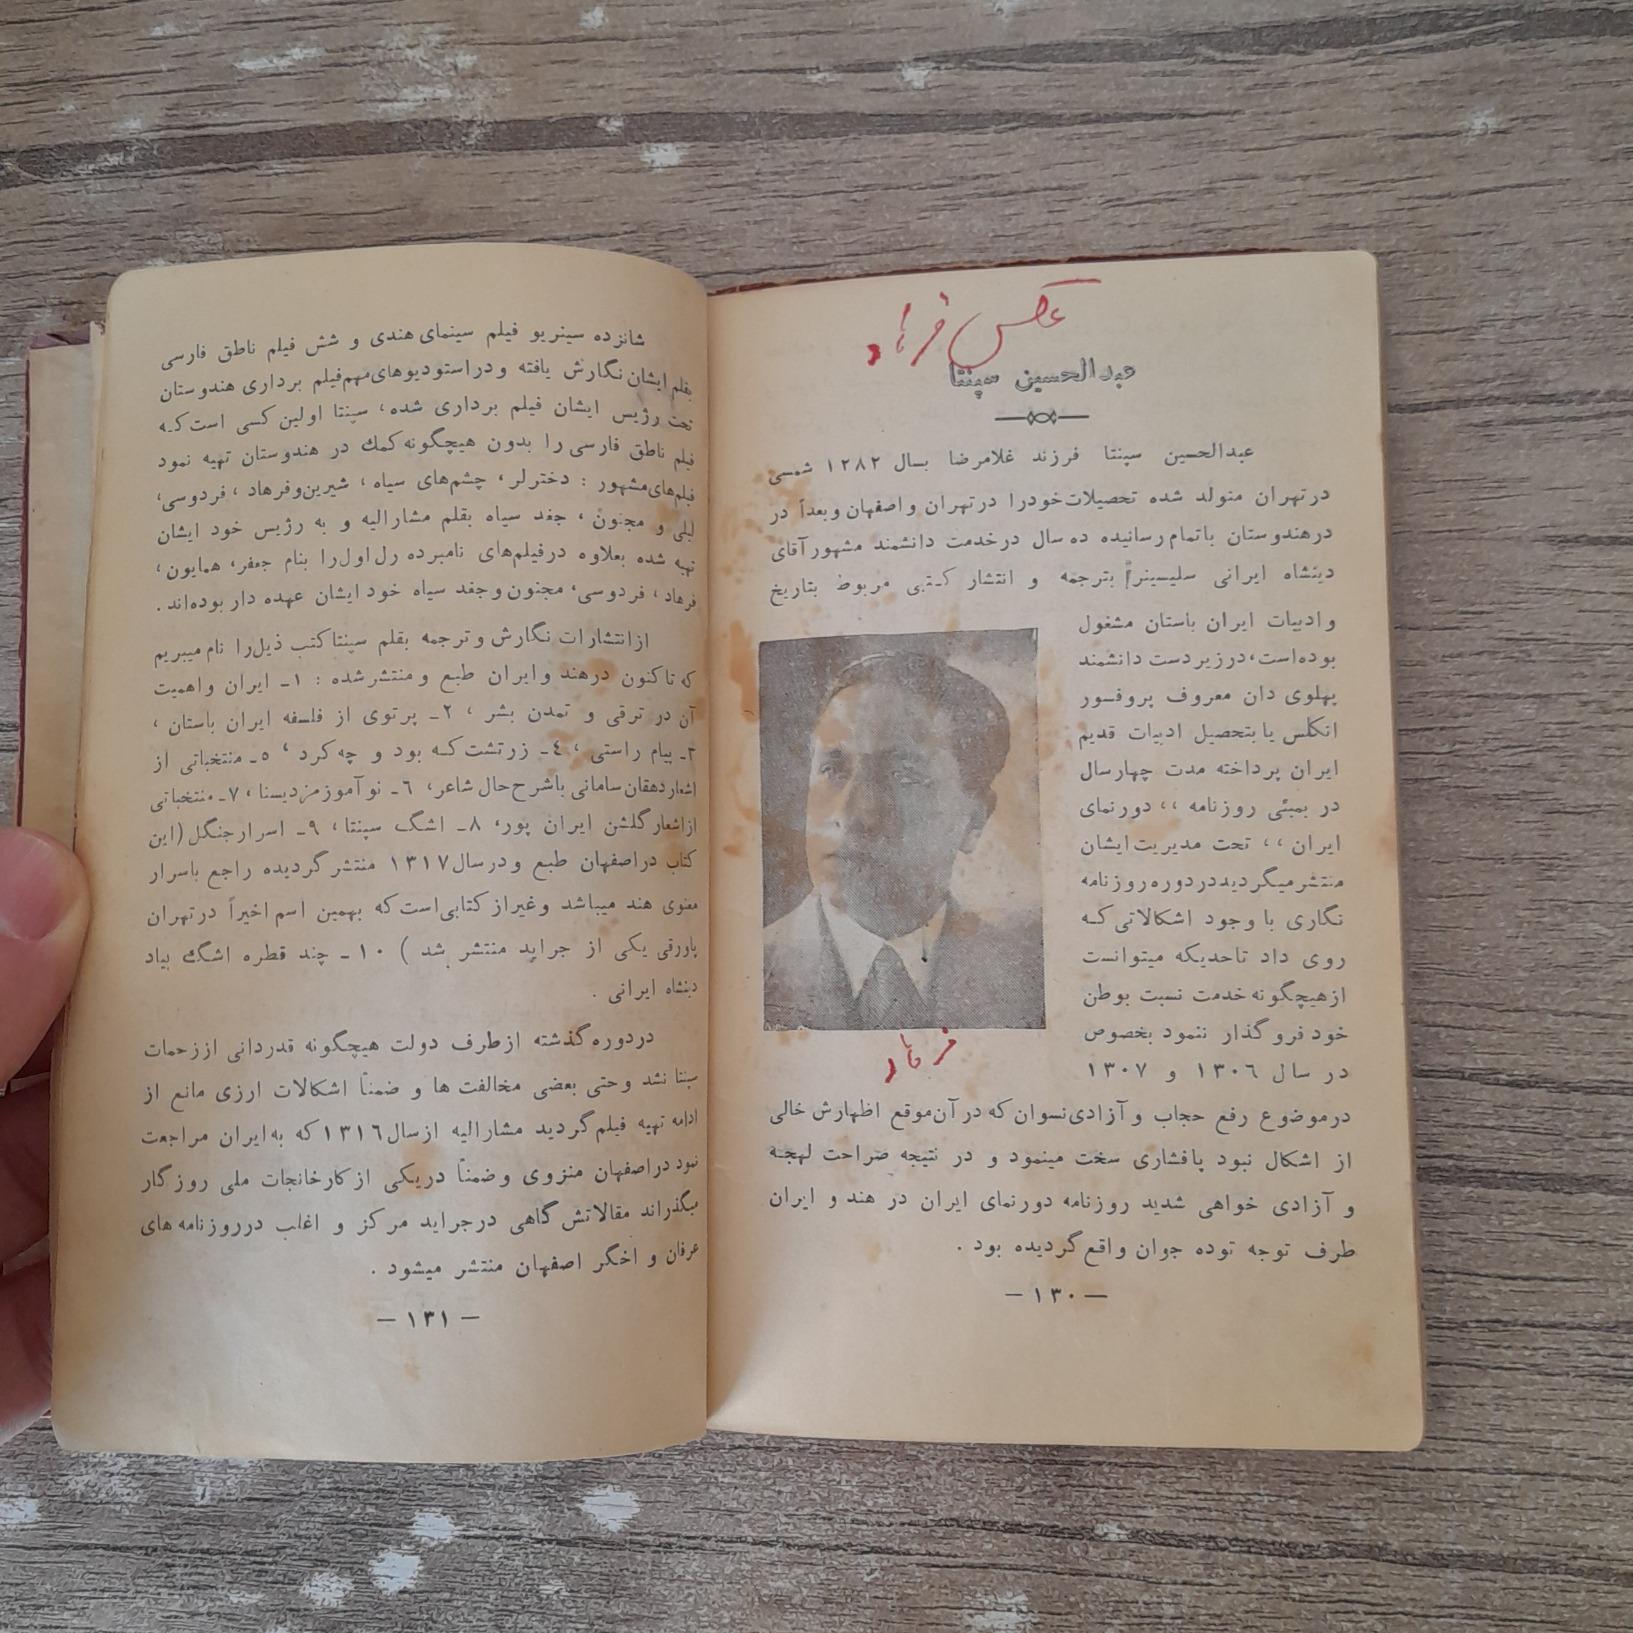 عکس فرهاد
عبدالحسین سپنتا
عبدالحسین سپنتا فرزند غلامرضا بسال ۱۲۸۲ شمسی
در تهران متولد شده تحصیلات خود را در تهران و اصفهان و بعداً در
در هندوستان باتمام رسانیده ده سال در خدمت دانشمند مشهور آقای
دینشاه ایرانی سلیسیتر بترجمه و انتشار کتبی مربوط بتاریخ
و ادبیات ایران باستان مشغول
بوده است، در زیر دست دانشمند
پهلوی دان معروف پروفسور
انکلس یا بتحصیل ادبیات قدیم
ایران پرداخته مدت چهار سال
در بمبئی روزنامه ،، دور نمای
ایران ،، تحت مدیریت ایشان
منتشر میگردید در دوره روزنامه
نگاری با وجود اشکالاتی که
روی داد تا حدیکه میتوانست
از هیچگونه خدمت نسبت بوطن
خود فرو گذار ننمود بخصوص
در سال ۱۳۰۶ و ۱۳۰۷
فرهاد
در موضوع رفع حجاب و آزادی نسوان که در آن موقع اظهارش خالی
از اشکال نبود پافشاری سخت مینمود و در نتیجه صراحت لهجه
و آزادی خواهی شدید روزنامه دورنمای ایران در هند و ایران
طرف توجه توده جوان واقع گردیده بود .
— ۱۳۰ —
شانزده سینریو فیلم سینمای هندی و شش فیلم ناطق فارسی
بقلم ایشان نگارش یافته و در استودیوهای مهم فیلم برداری هندوستان
تحت رژیس ایشان فیلم برداری شده، سپنتا اولین کسی است که
فیلم ناطق فارسی را بدون هیچگونه کمك در هندوستان تهیه نمود
فیلم‌های مشهور : دختر لر، چشم‌های سیاه، شیرین و فرهاد، فردوسی،
لیلی و مجنون، جغد سیاه بقلم مشارالیه و به رژیس خود ایشان
تهیه شده بعلاوه در فیلم‌های نامبرده رل اول را بنام جعفر، همایون،
فرهاد، فردوسی، مجنون و جغد سیاه خود ایشان عهده دار بوده‌اند.
از انتشارات نگارش و ترجمه بقلم سپنتا کتب ذیل را نام میبریم
که تا کنون در هند و ایران طبع و منتشر شده : ۱ـ ایران و اهمیت
آن در ترقی و تمدن بشر ، ۲ـ پرتوی از فلسفه ایران باستان ،
۳ـ پیام راستی ، ٤ـ زرتشت که بود و چه کرد ، ٥ـ منتخباتی از
اشعار دهقان سامانی با شرح حال شاعر، ٦ـ نو آموز مزدیسنا، ۷ـ منتخباتی
از اشعار گلشن ایران پور، ۸ـ اشگ سپنتا، ۹ـ اسرار جنگل (این
کتاب در اصفهان طبع و در سال ۱۳۱۷ منتشر گردیده راجع باسرار
معنوی هند میباشد و غیر از کتابی است که بهمین اسم اخیراً در تهران
پاورقی یکی از جراید منتشر شد ) ۱۰ـ چند قطره اشگ بیاد
دینشاه ایرانی .
در دوره گذشته از طرف دولت هیچگونه قدردانی از زحمات
سپنتا نشد و حتی بعضی مخالفت ها و ضمناً اشکالات ارزی مانع از
ادامه تهیه فیلم گردید مشارالیه از سال ۱۳۱٦ که به ایران مراجعت
نمود در اصفهان منزوی و ضمناً در یکی از کارخانجات ملی روزگار
میگذراند مقالاتش گاهی در جراید مرکز و اغلب در روزنامه های
عرفان و اخگر اصفهان منتشر میشود .
— ۱۳۱ —